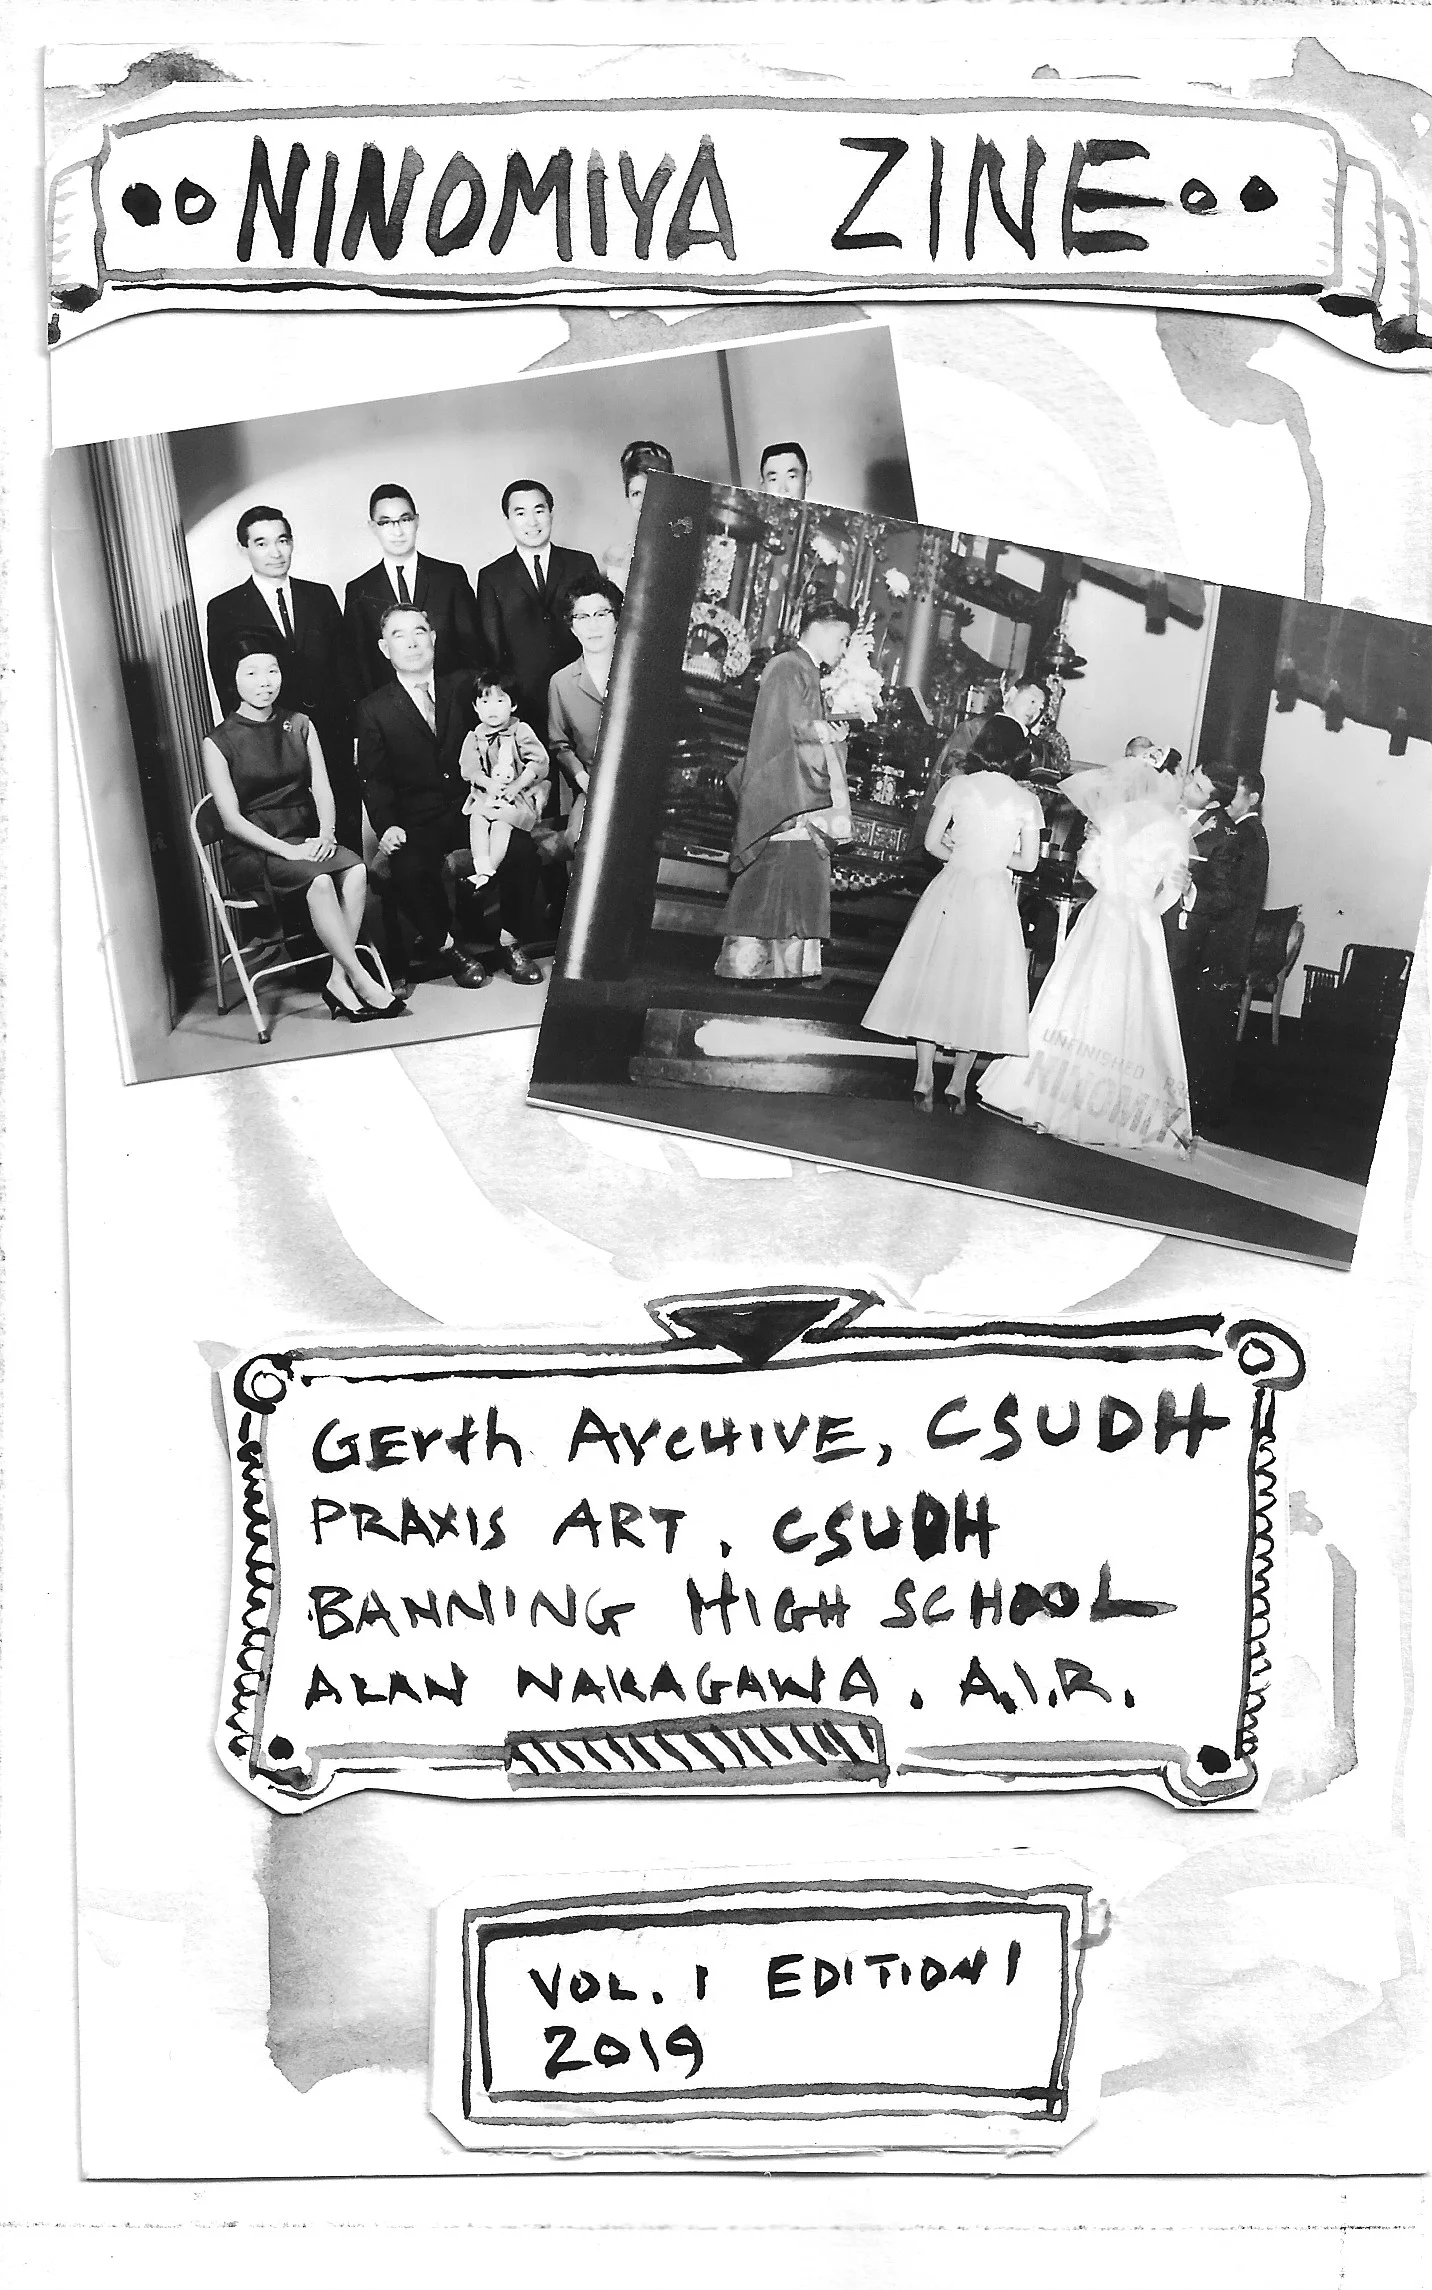 NINOMIYA ZINE
UNFINISHED
NINOMIYA
GErth ArcHIVE, CSUDH
PRAXIS ART, CSUDH
BANNING HIGH SCHOOL
ALAN NAKAGAWA. A.I.R.
VOL. 1 EDITION 1
2019